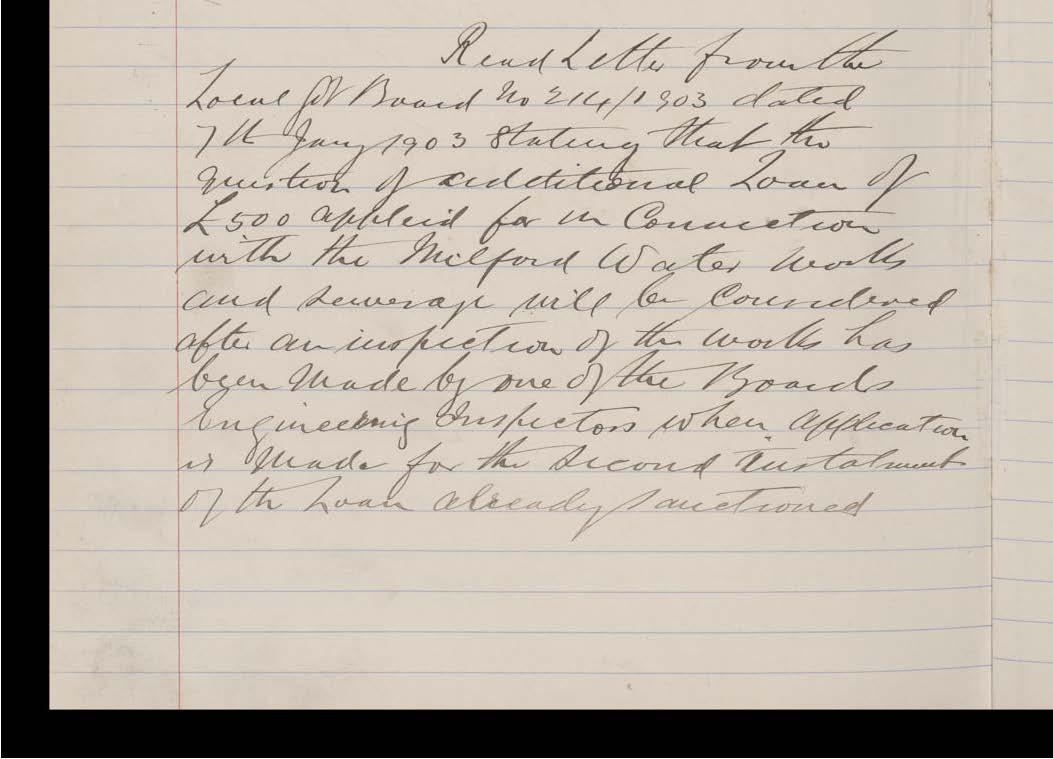 Read Letter from the
Local Gt Board No 214/1903 dated
7th Jany 1903 Stating that the
question of additional Loan of
£500 applied for in Connection
with the Milford Water Works
and sewerage will be Considered
after an inspection of the works has
been Made by one of the Boards
Engineering Inspectors when application
is Made for the Second Instalment
of the Loan already sanctioned